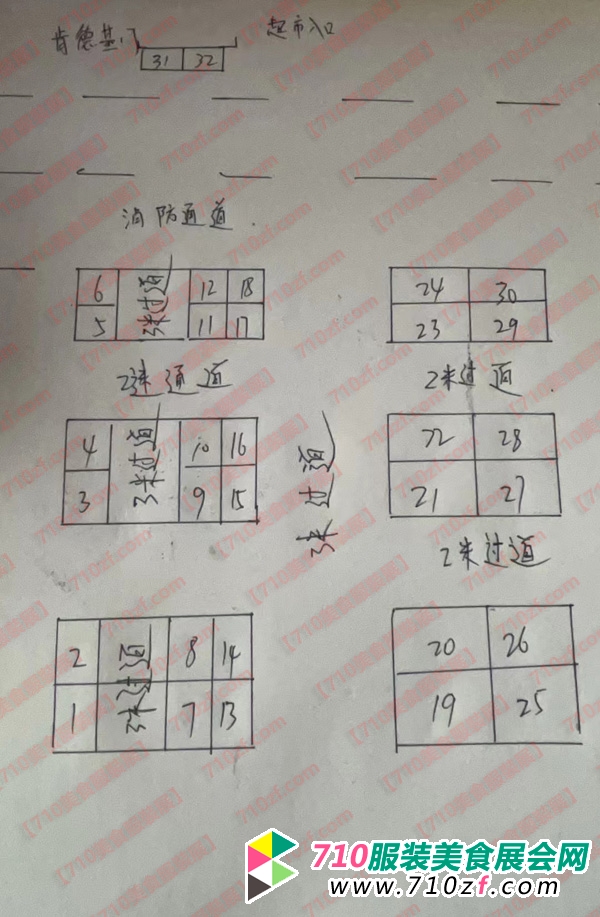 肯德基门 超市入口
31 32
消防通道
6 3米过道 12 18 24 30
5 11 17 23 29
2米通道 2米过道
4 3米过道 10 16 22 28
3 9 15 21 27
3米过道
2米过道
2 3米过道 8 14 20 26
1 7 13 19 25
710服装美食展会网
www.710zf.com